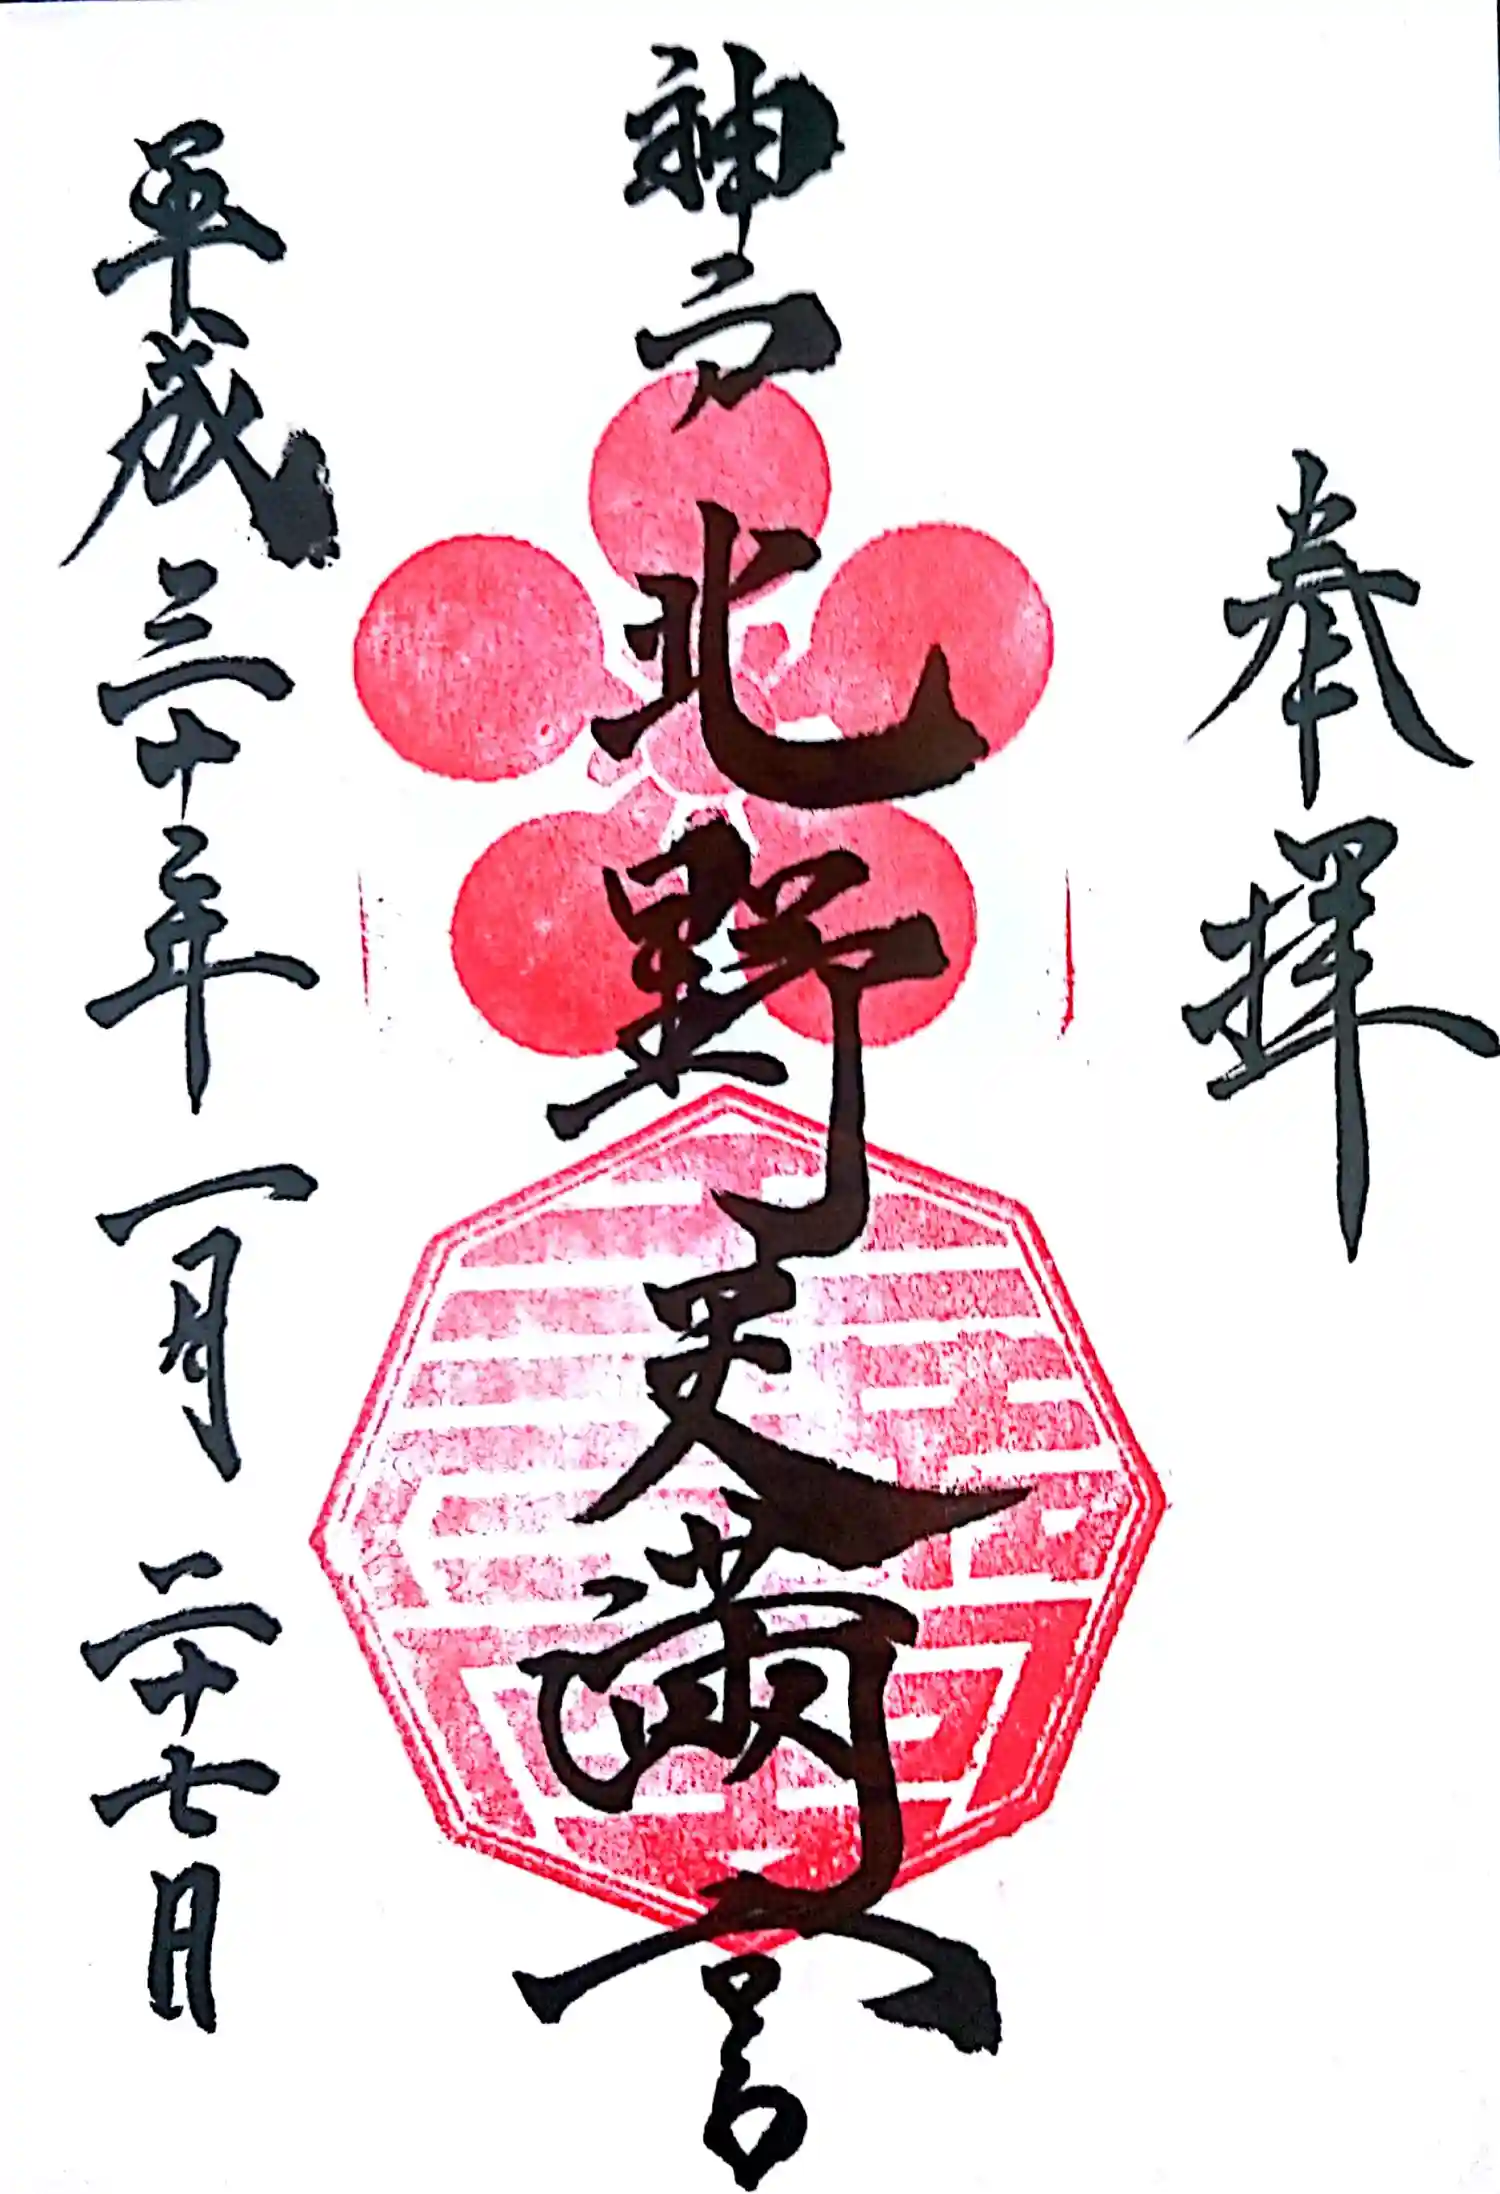 奉拝
神戸北野天満宮
平成三十年一月二十七日